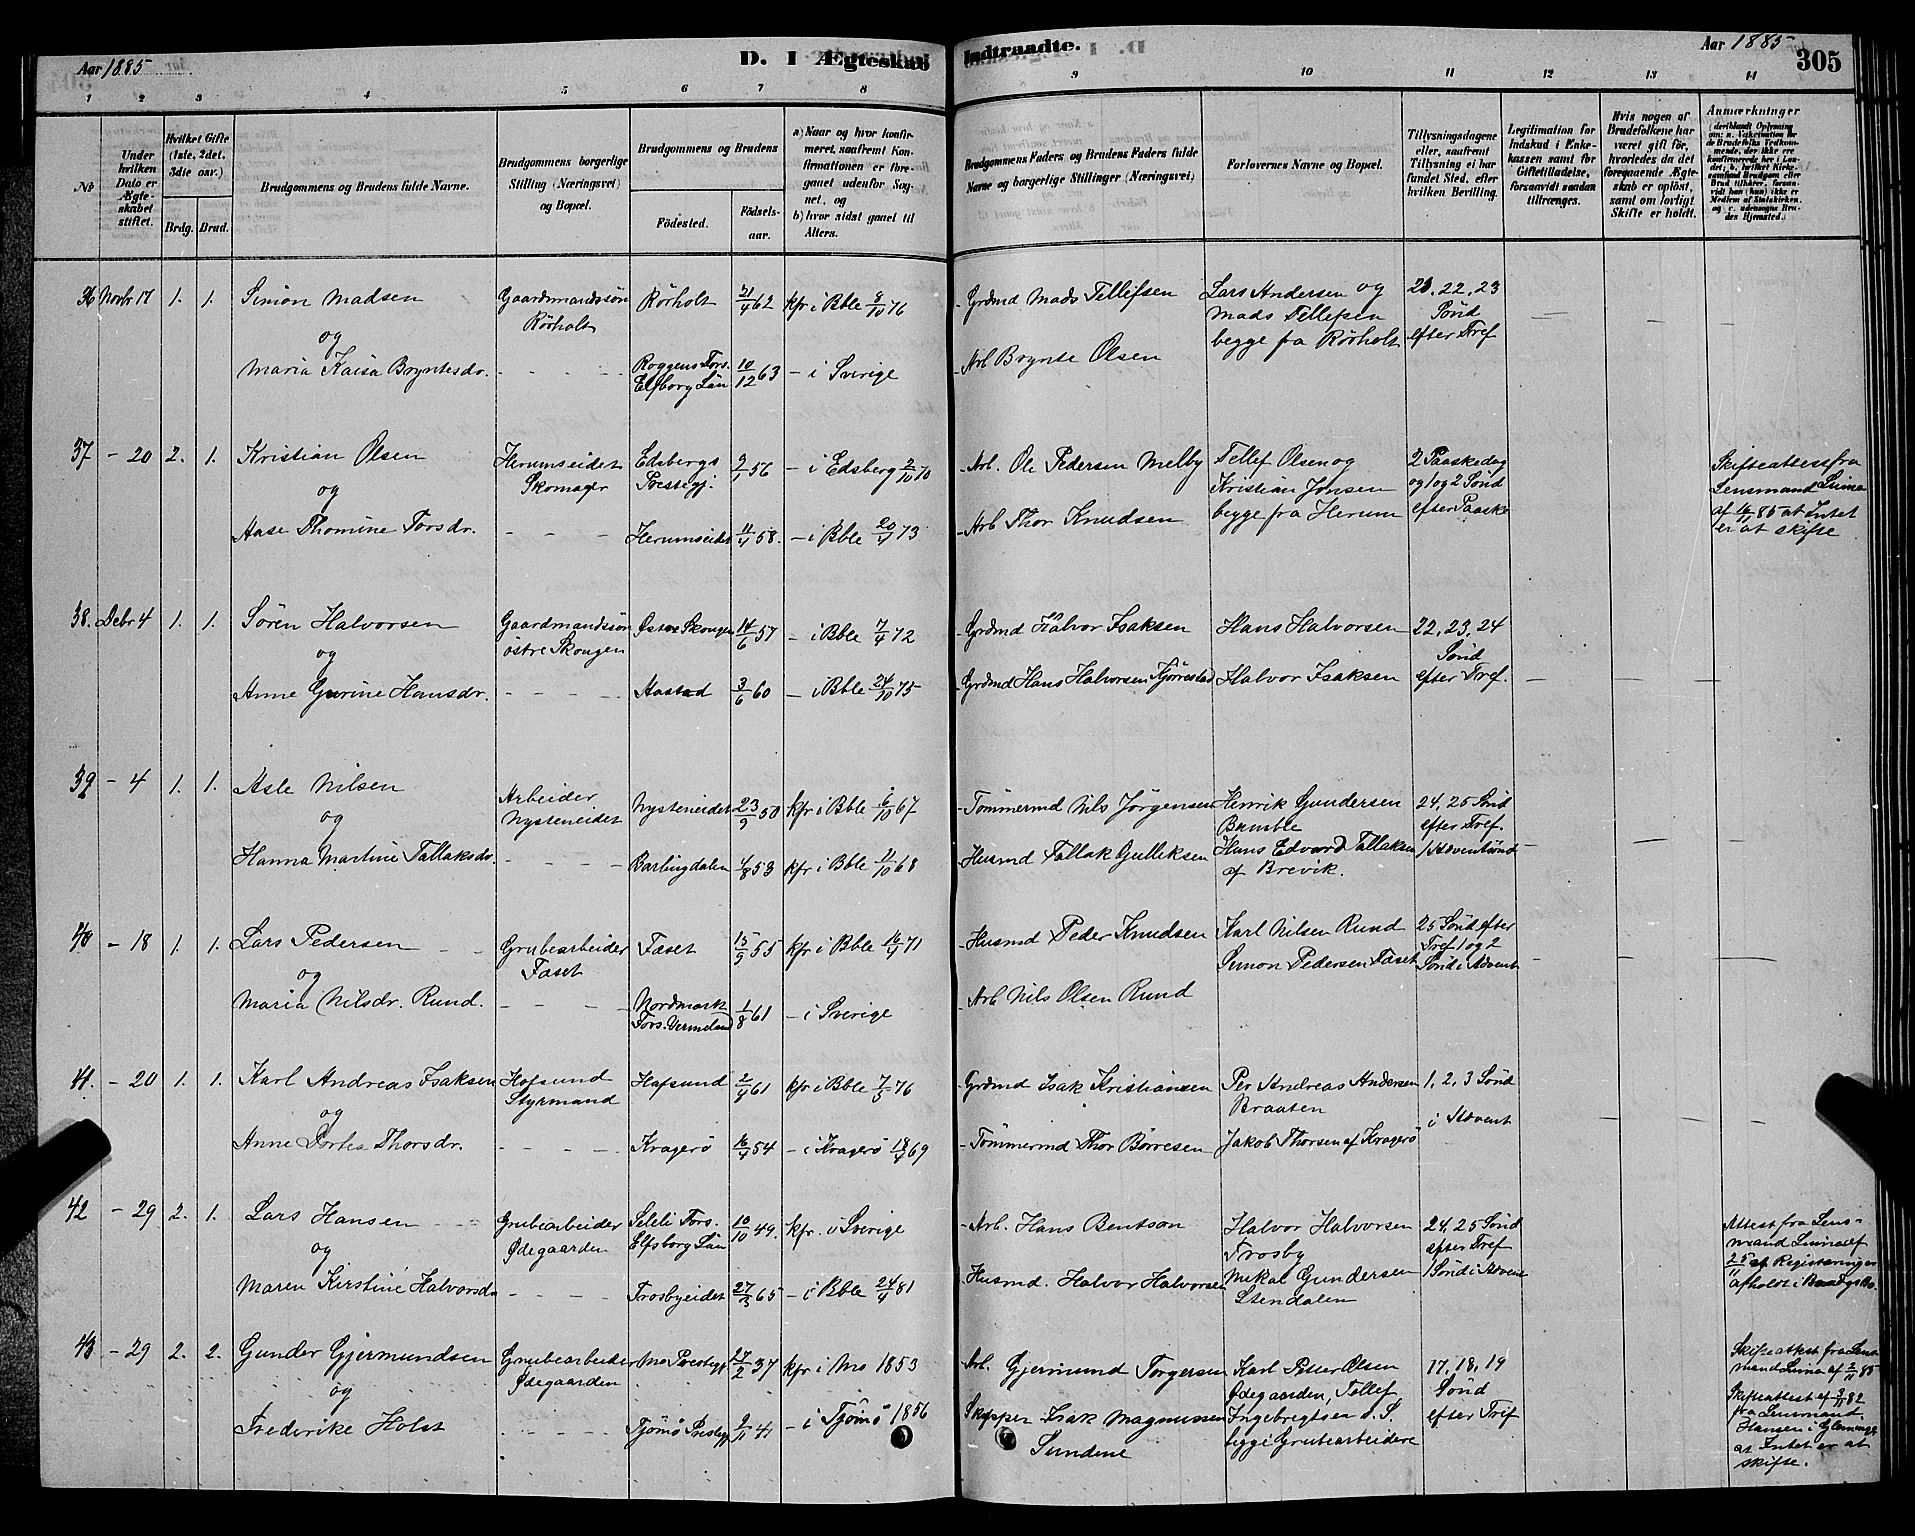 Aar 1885
D. I Ægteskab Indtraadte.
Aar 1885
305
1 2 3 4 5 6 7 8 9 10 11 12 13 14
No
Under hvilken Dato er Ægteskabet stiftet.
Hvilket Gifte (1ste, 2det, 3die osv.)
Brdg. Brud.
Brudgommens og Brudens fulde Navne.
Brudgommens borgerlige Stilling (Næringsvei) og Bopæl.
Brudgommens og Brudens
Fødested.
Fødselsaar.
a) Naar og hvor konfirmeret, saafremt Konfirmationen er foregaaet udenfor Sognet, og
b) hvor sidst gaaet til Alters.
Brudgommens Faders og Brudens Faders fulde Navne og borgerlige Stillinger (Næringsvei)
Forlovernes Navne og Bopæl.
Tillysningsdagene eller, saafremt Tillysning ei har fundet Sted, efter hvilken Bevilling.
Legitimation for Indskud i Enkekassen samt for Giftetilladelse, forsaavidt saadan tiltrænges.
Hvis nogen af Brudefolkene har været gift før, hvorledes da det foregaaende Ægteskab er opløst, samt om lovligt Skifte er holdt.
Anmærkninger
36 Novbr 17 1. 1. Simon Madsen Gaardmandssøn Rörholt Rörholt 21/4 62 kfr i Bble 8/10 76 Grdmd Mads Tellefsen Lars Andersen og Mads Tellefsen begge fra Rörholt 21. 22. 23 Sönd efter Tref
og
Maria Kaisa Bryntesdr. Roggens Fors. Elfborg Län 10/12 63 - i Sverige Arb Brynte Olsen
37 - 20 2. 1. Kristian Olsen Herumseidet Skomager Edsbergs Prestegj. 9/1 56 - i Edsberg 2/10 70 Arb. Ole Pedersen Melby Tellef Olsen og Kristian Jonsen begge fra Herum 2 Paaskedag og 1 og 2 Sönd efter Paaske Skifteattest fra Lensmand af 16/11 85 at Intet er at skifte
og
Aase Thomine Torsdr. Herumseidet 11/4 58. - i Bble 20/4 73 Arb Thor Knudsen
38. Debr 4 1. 1. Sören Halvorsen Gaardmandssøn östre Skougen Östre Skougen 14/6 57 - i Bble 7/4 72 Grdmd Halvor Isaksen Hans Halvorsen 22, 23, 24 Sönd efter Tref.
og
Anne Gurine Hansdr. Aastad 3/6 60 - i Bble 24/10 75 Grdmd Hans Halvorsen Halvor Isaksen
39 - 4 1. 1. Asle Nilsen Arbeider Nysteneidet Nysteneidet 23/9 50 kfr i Bble 6/10 67 Tömmermd Nils Jörgensen Henrik Gundersen Bamble 24, 25 Sönd efter Tref. 1 Adventsönd
og
Hanna Martine Tallaksdr. Barlingdalen 4/8 53 kfr i Bble 11/10 68 Husmd Tallak Gulliksen Hans Edvard Tallaksen af Brevik.
40 - 18 1. 1. Lars Pedersen Grubearbeider Faset Faset 15/9 55 kfr i Bble 16/4 71 Husmd Peder Knudsen Karl Nilsen Rund Simon Pedersen Faset 25 Sönd efter Tref 1 og 2 Sönd i Advent
og
Maria Nilsdr. Rund. Nordmark Fors. Vermeland 1/8 61 - i Sverige Arb Nils Olsen Rund
41. - 20 1. 1. Karl Andreas Isaksen Hafsund Styrmand Hafsund 2/9 61 kfr i Bble 7/5 76 Grdmd Isak Kristiansen Per Andreas Andersen Braaten 1, 2, 3 Sönd i Advent
og
Anne Dortea Thorsdr. Kragerö 16/4 54 - i Kragerö 18/4 69 Tömmermd Thor Börresen Jakob Thorsen af Kragerö
42 - 29 2. 1. Lars Hansen Grubearbeider Ødegaarden Fors. Elfsborg Län 10/10 49. kfr. i Sverige Arb. Hans Bentson Halvor Halvorsen Trosby 24, 25 Sönd efter Tref 1 Sönd i Advent Attest fra Lensmand af 25/11 at Registrering er afholdt i
og
Maren Kirstine Halvorsdr Trosbyeidet 27/3 65 - i Bble 24/4 81 Husmd. Halvor Halvorsen Mikal Gundersen Stendalen
43 - 29 2. 2. Gunder Gjermundsen Grubearbeider Ødegaarden Mo Prestegj 27/2 37 kfr i Mo 1853 Arb. Gjermund Torgersen Karl Petter Olsen Ødegaarden, Tellef Ingebregtsen d. S. begge Grubearbeidere 17, 18, 19 Sönd efter Tref Skifteattest fra Lensmand af 2/11 85
og
Frederike Holst Tjömö Prestegj 2/11 41 - i Tjömö 1856 Skipper Isak Magnussen Sundene Skifteattest af 3/11 82 fra Lensmand Hansen i at Intet er at skifte.